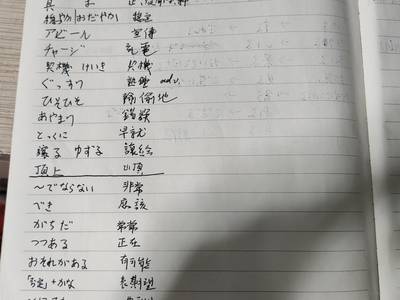 穏やか おだやか 穏定
アピール 宣傳
チャージ 充電
契機 けいき 契機
ぐっすり 熟睡 adv.
ひそひそ 偷偷地
あやまり 錯誤
とっくに 早就
譲る ゆずる 譲給
頂上 山頂
～でならない 非常
べき 應該
がちだ 常常
つつある 正在
おそれがある 有可能